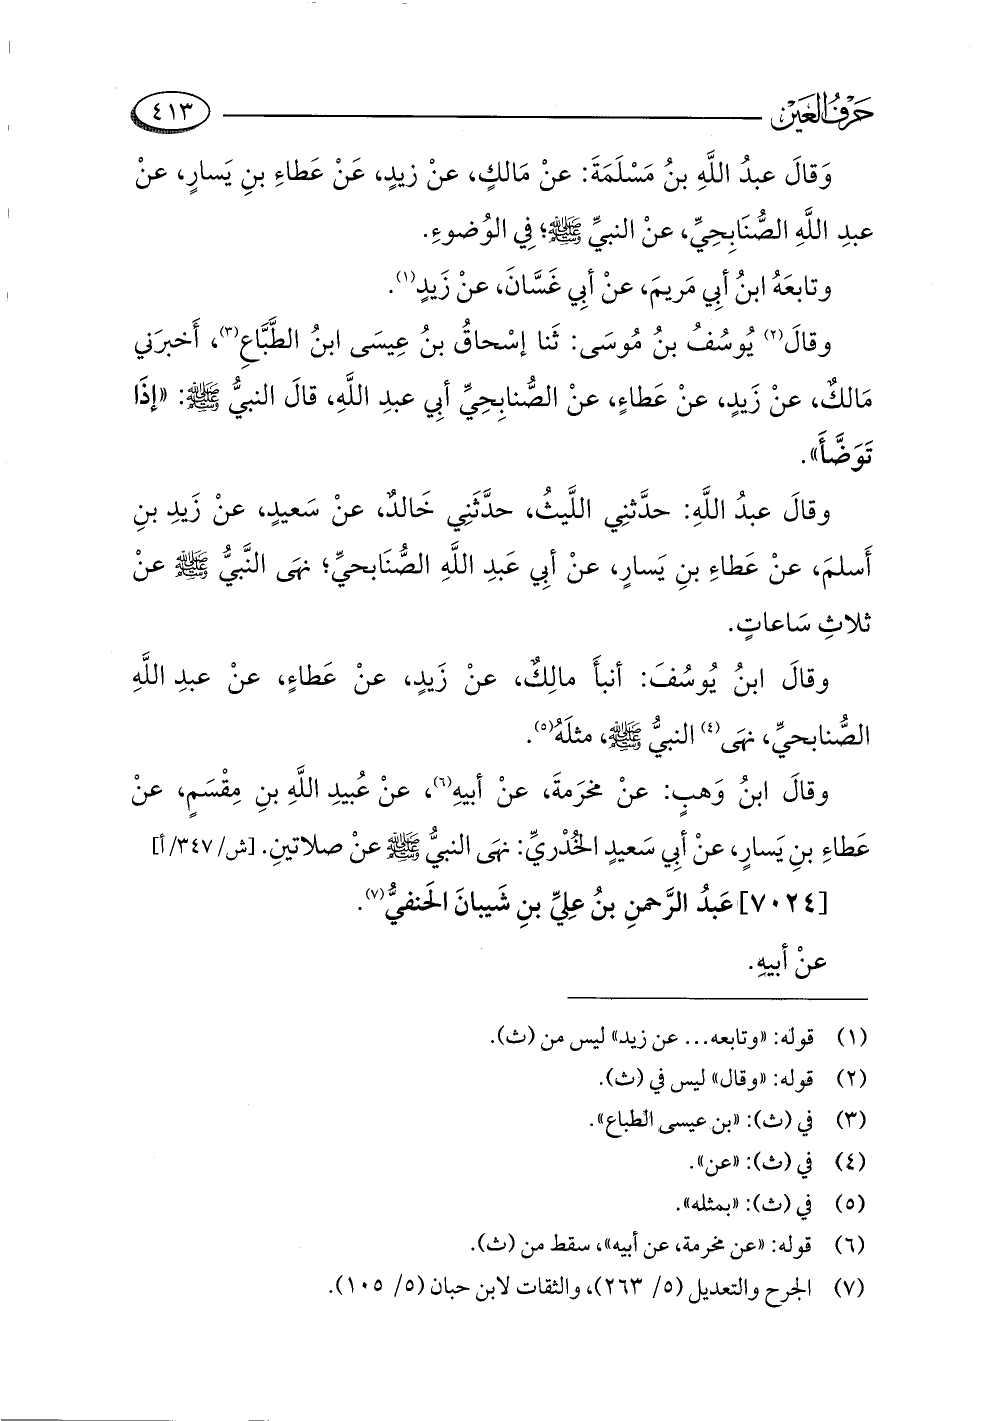 حَرْفُ العَيْن ٤١٣
وَقالَ عبدُ اللَّهِ بنُ مَسْلَمَةَ: عنْ مَالكٍ، عنْ زيدٍ، عَنْ عَطاءِ بنِ يَسارٍ، عنْ
عبدِ اللَّهِ الصُّنَابِحِيِّ، عنْ النبيِّ ﷺ؛ فِي الوُضوءِ.
وتابعَهُ ابنُ أبِي مَريمَ، عنْ أبِي غَسَّانَ، عنْ زَيدٍ(١).
وقالَ(٢) يُوسُفُ بنُ مُوسَى: ثَنا إسْحاقُ بنُ عِيسَى ابنُ الطَّبَّاعِ(٣)، أَخبرَني
مَالكٌ، عنْ زَيدٍ، عنْ عَطاءٍ، عنْ الصُّنابِحِيِّ أبي عبدِ اللَّهِ، قالَ النبيُّ ﷺ: «إذَا
تَوَضَّأَ».
وقالَ عبدُ اللَّهِ: حدَّثنِي اللَّيثُ، حدَّثَنِي خَالدٌ، عنْ سَعيدٍ، عنْ زَيدِ بنِ
أَسلمَ، عنْ عَطاءِ بنِ يَسارٍ، عنْ أبي عَبدِ اللَّهِ الصُّنَابحيِّ؛ نهَى النَّبيُّ ﷺ عنْ
ثلاثِ سَاعاتٍ.
وقالَ ابنُ يُوسُفَ: أنبأَ مالِكٌ، عنْ زَيدٍ، عنْ عَطاءٍ، عنْ عبدِ اللَّهِ
الصُّنابحيِّ، نهَى(٤) النبيُّ ﷺ، مثلَهُ(٥).
وقالَ ابنُ وَهبٍ: عنْ مخرَمةَ، عنْ أبيهِ(٦)، عنْ عُبيدِ اللَّهِ بنِ مِقْسَمٍ، عنْ
عَطاءِ بنِ يَسارٍ، عنْ أبي سَعيدٍ الخُدْريِّ: نهَى النبيُّ ﷺ عنْ صلاتينِ. [ش/ ٣٤٧/ أ]
[٧٠٢٤] عَبدُ الرَّحمنِ بنُ علِيِّ بنِ شَيبانَ الحَنفيُّ(٧).
عنْ أبيهِ.
(١) قوله: «وتابعه... عن زيد» ليس من (ث).
(٢) قوله: «وقال» ليس في (ث).
(٣) في (ث): «بن عيسى الطباع».
(٤) في (ث): «عن».
(٥) في (ث): «بمثله».
(٦) قوله: «عن مخرمة، عن أبيه»، سقط من (ث).
(٧) الجرح والتعديل (٥/ ٢٦٣)، والثقات لابن حبان (٥/ ١٠٥).